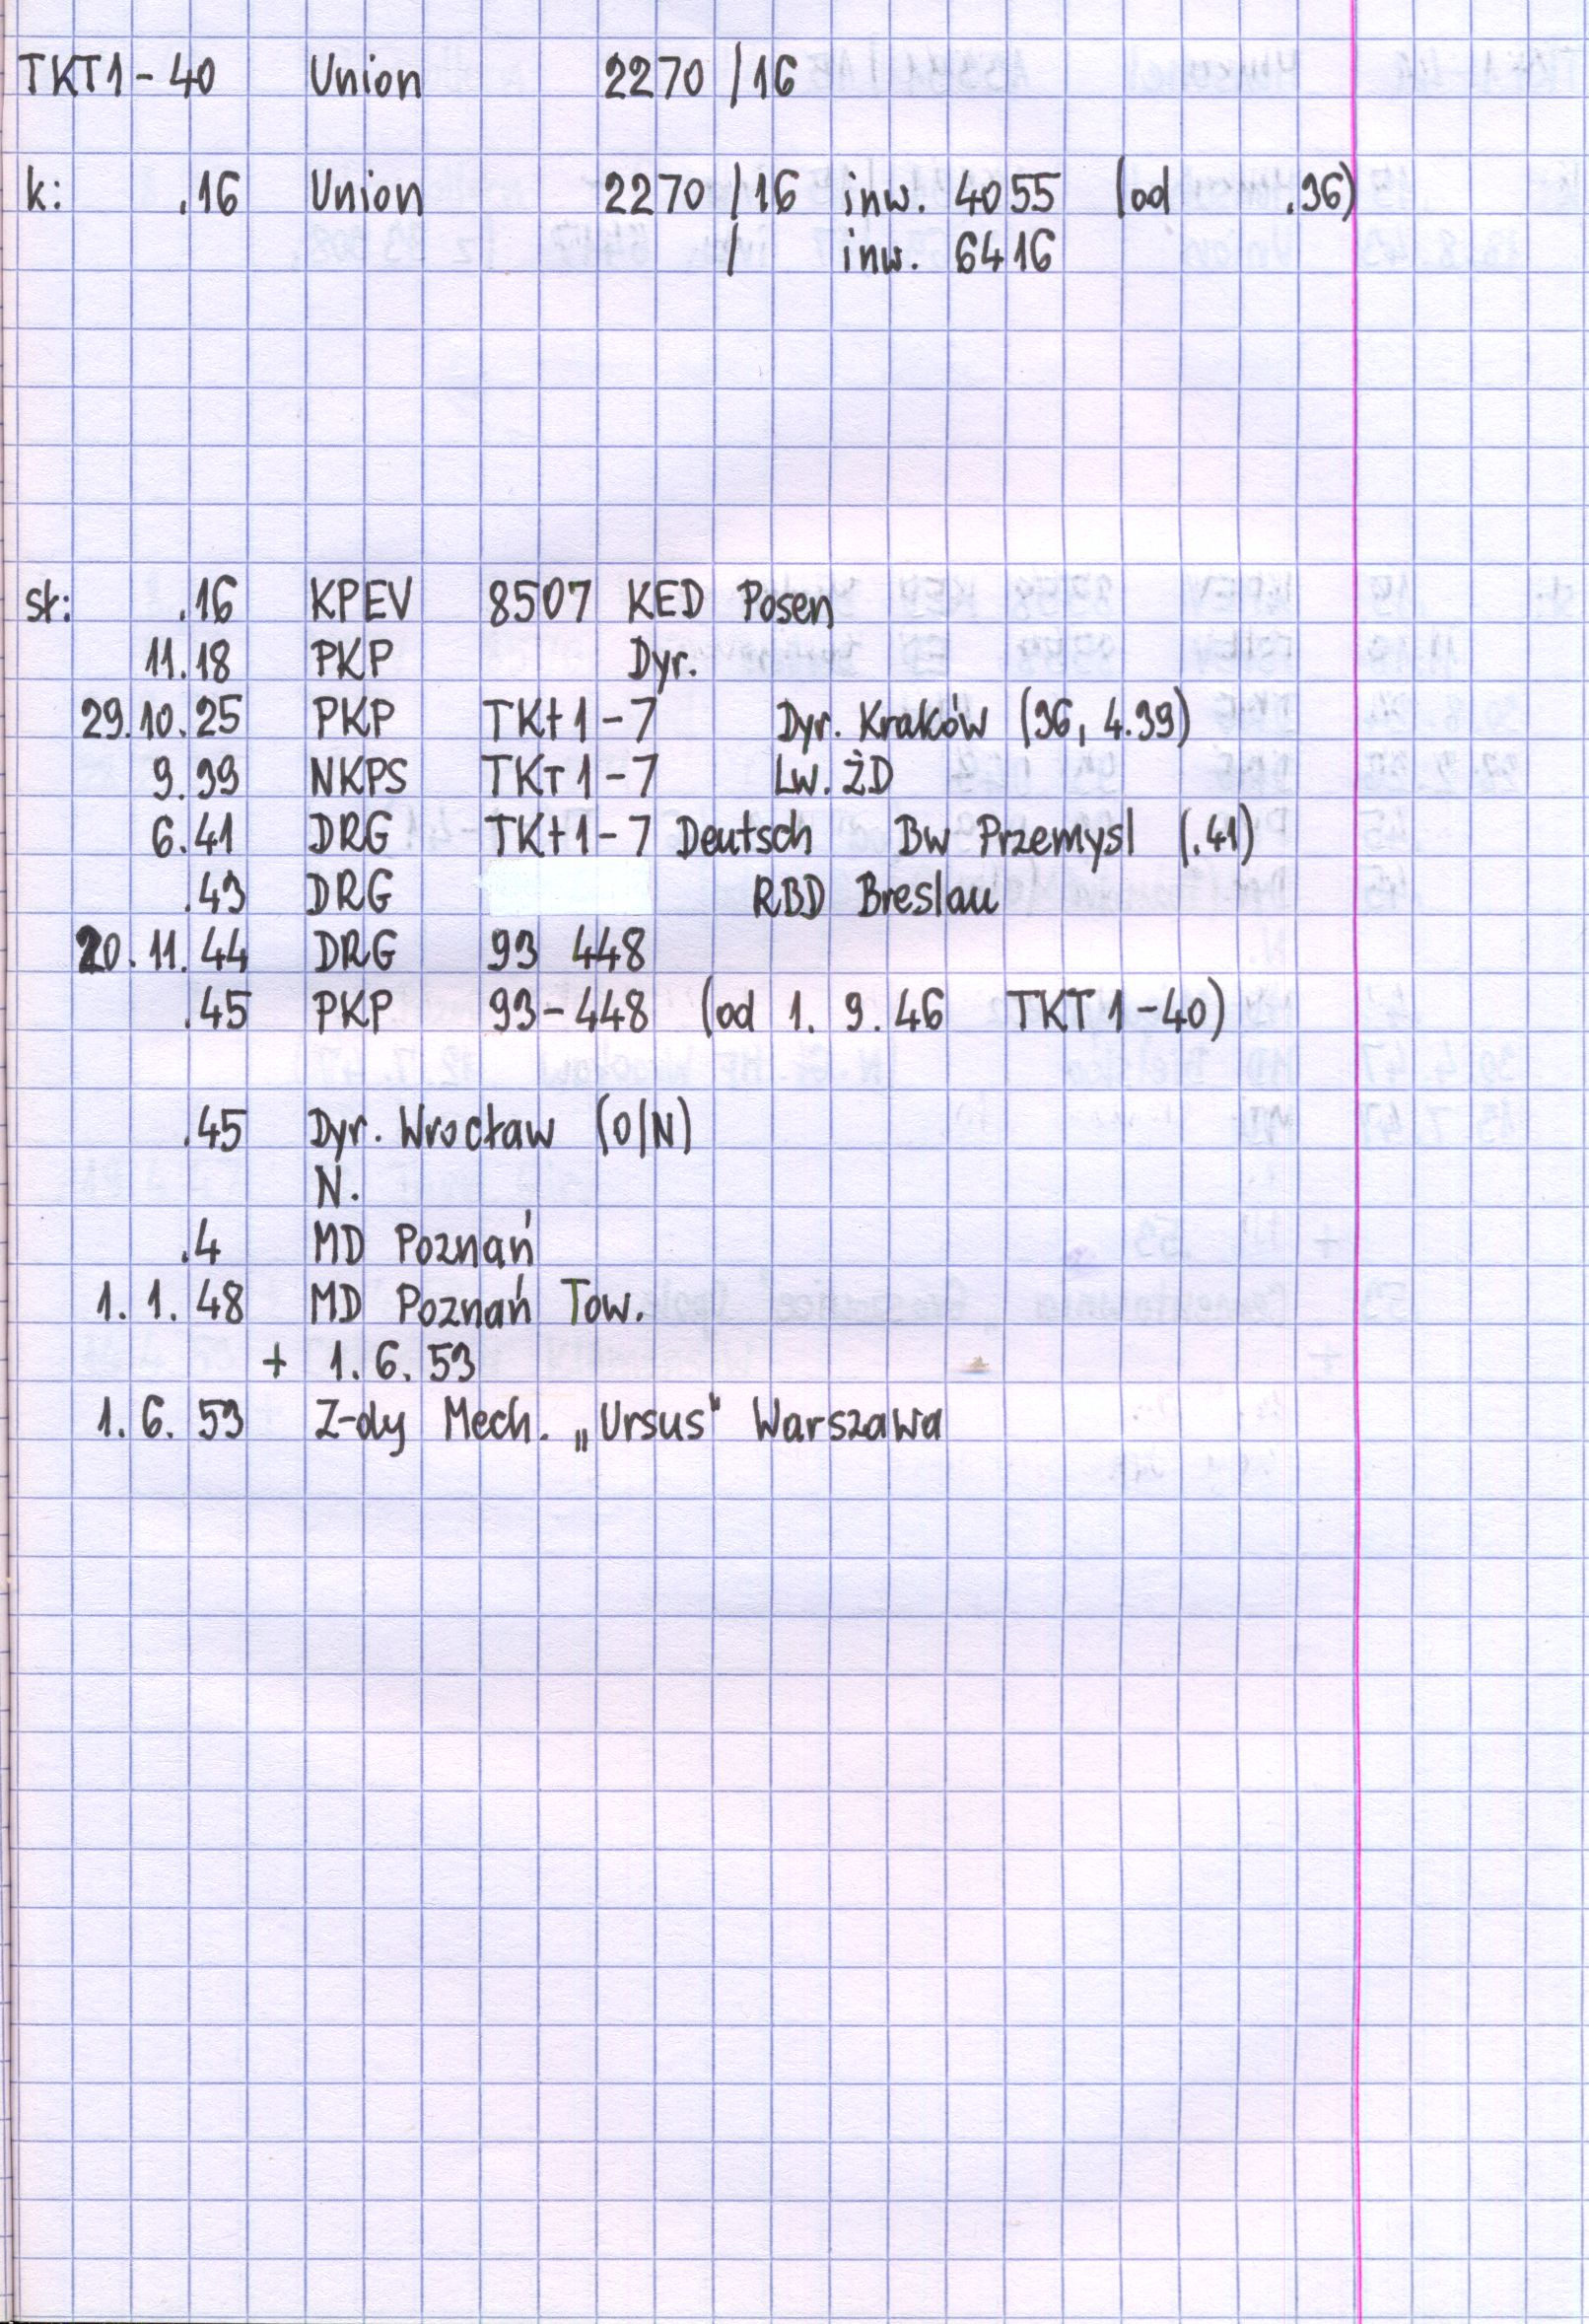 TKT1-40 Union 2270/16
k: .16 Union 2270/16 inw. 4055 (od .36)
/ inw. 6416
st: .16 KPEV 8507 KED Posen
11.18 PKP Dyr.
29.10.25 PKP TKt1-7 Dyr. Kraków (36, 4.39)
9.39 NKPS TKт1-7 Lw. ŻD
6.41 DRG TKt1-7 Deutsch Bw Przemysl (.41)
.43 DRG RBD Breslau
20.11.44 DRG 93 448
.45 PKP 93-448 (od 1.9.46 TKT1-40)
.45 Dyr. Wrocław (O/N)
N.
.4 MD Poznań
1.1.48 MD Poznań Tow.
+ 1.6.53
1.6.53 Z-dy Mech. „Ursus" Warszawa